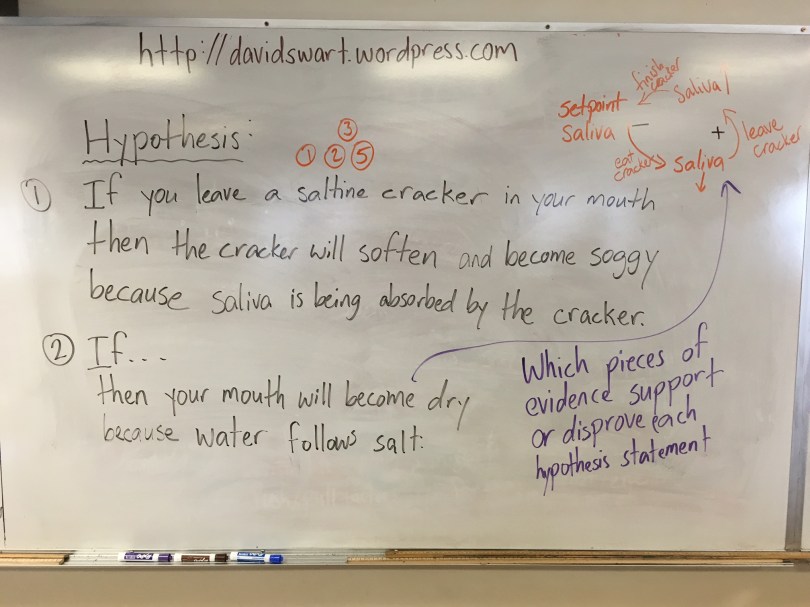 http://davidswart.wordpress.com
finish cracker
setpoint
Saliva
Saliva
−
+
leave cracker
eat crackers
Saliva
↓
Hypothesis:
③
① ② ⑤
① If you leave a saltine cracker in your mouth
then the cracker will soften and become soggy
because saliva is being absorbed by the cracker.
② If...
then your mouth will become dry
because water follows salt.
Which pieces of
evidence support
or disprove each
hypothesis statement